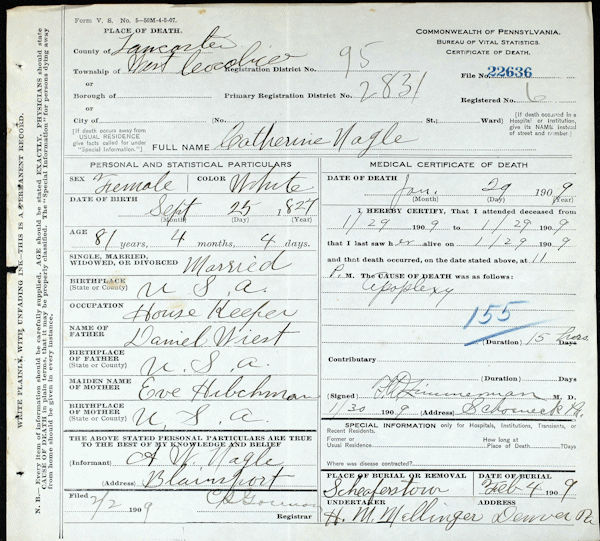 Form V. S. No. 5—50M-4-5-07.
PLACE OF DEATH.
County of Lancaster
Township of West Cocalico
or
Borough of
or
City of
Registration District No. 95
Primary Registration District No. 2831
(No. St.; Ward)
COMMONWEALTH OF PENNSYLVANIA.
BUREAU OF VITAL STATISTICS.
CERTIFICATE OF DEATH.
File No. 22636
Registered No. 6
[If death occurs away from
USUAL RESIDENCE
give facts called for under
"Special Information."]
[If death occurred in a
Hospital or institution,
give its NAME instead
of street and number.]
FULL NAME Catherine Nagle
PERSONAL AND STATISTICAL PARTICULARS
SEX Female COLOR White
DATE OF BIRTH Sept 25 1827
(Month) (Day) (Year)
AGE 81 years, 4 months, 4 days.
SINGLE, MARRIED,
WIDOWED, OR DIVORCED Married
BIRTHPLACE
(State or County) U. S. a.
OCCUPATION House Keeper
NAME OF
FATHER Daniel Wiest
BIRTHPLACE
OF FATHER
(State or County) U. S. a.
MAIDEN NAME
OF MOTHER Eve Hibchman
BIRTHPLACE
OF MOTHER
(State or County) U. S. a
THE ABOVE STATED PERSONAL PARTICULARS ARE TRUE
TO THE BEST OF MY KNOWLEDGE AND BELIEF
(Informant) A Nagle
(Address) Blainsport
Filed 2/2 1909
Registrar
MEDICAL CERTIFICATE OF DEATH
DATE OF DEATH
Jan. 29 1909
(Month) (Day) (Year)
I HEREBY CERTIFY, That I attended deceased from
1/29 1909 to 1/29 1909
that I last saw her alive on 1/29 1909
and that death occurred, on the date stated above, at 11
P. M. The CAUSE OF DEATH was as follows:
Apoplexy
155
(Duration) 15 hrs. Days
Contributary
(Duration) Days
(Signed) M. D.
1/30 1909 (Address) Schoneck Pa.
SPECIAL INFORMATION only for Hospitals, Institutions, Transients, or
Recent Residents.
Former or
Usual Residence
How long at
Place of Death? Days
Where was disease contracted?
PLACE OF BURIAL OR REMOVAL
Schaferstown
DATE OF BURIAL
Feb 4 1909
UNDERTAKER
H. M. Mellinger
ADDRESS
Denver Pa
WRITE PLAINLY, WITH UNFADING INK—THIS IS A PERMANENT RECORD.
N. B.—Every item of information should be carefully supplied. AGE should be stated EXACTLY. PHYSICIANS should state
CAUSE OF DEATH in plain terms, that it may be properly classified. The "Special Information" for persons dying away
from home should be given in every instance.